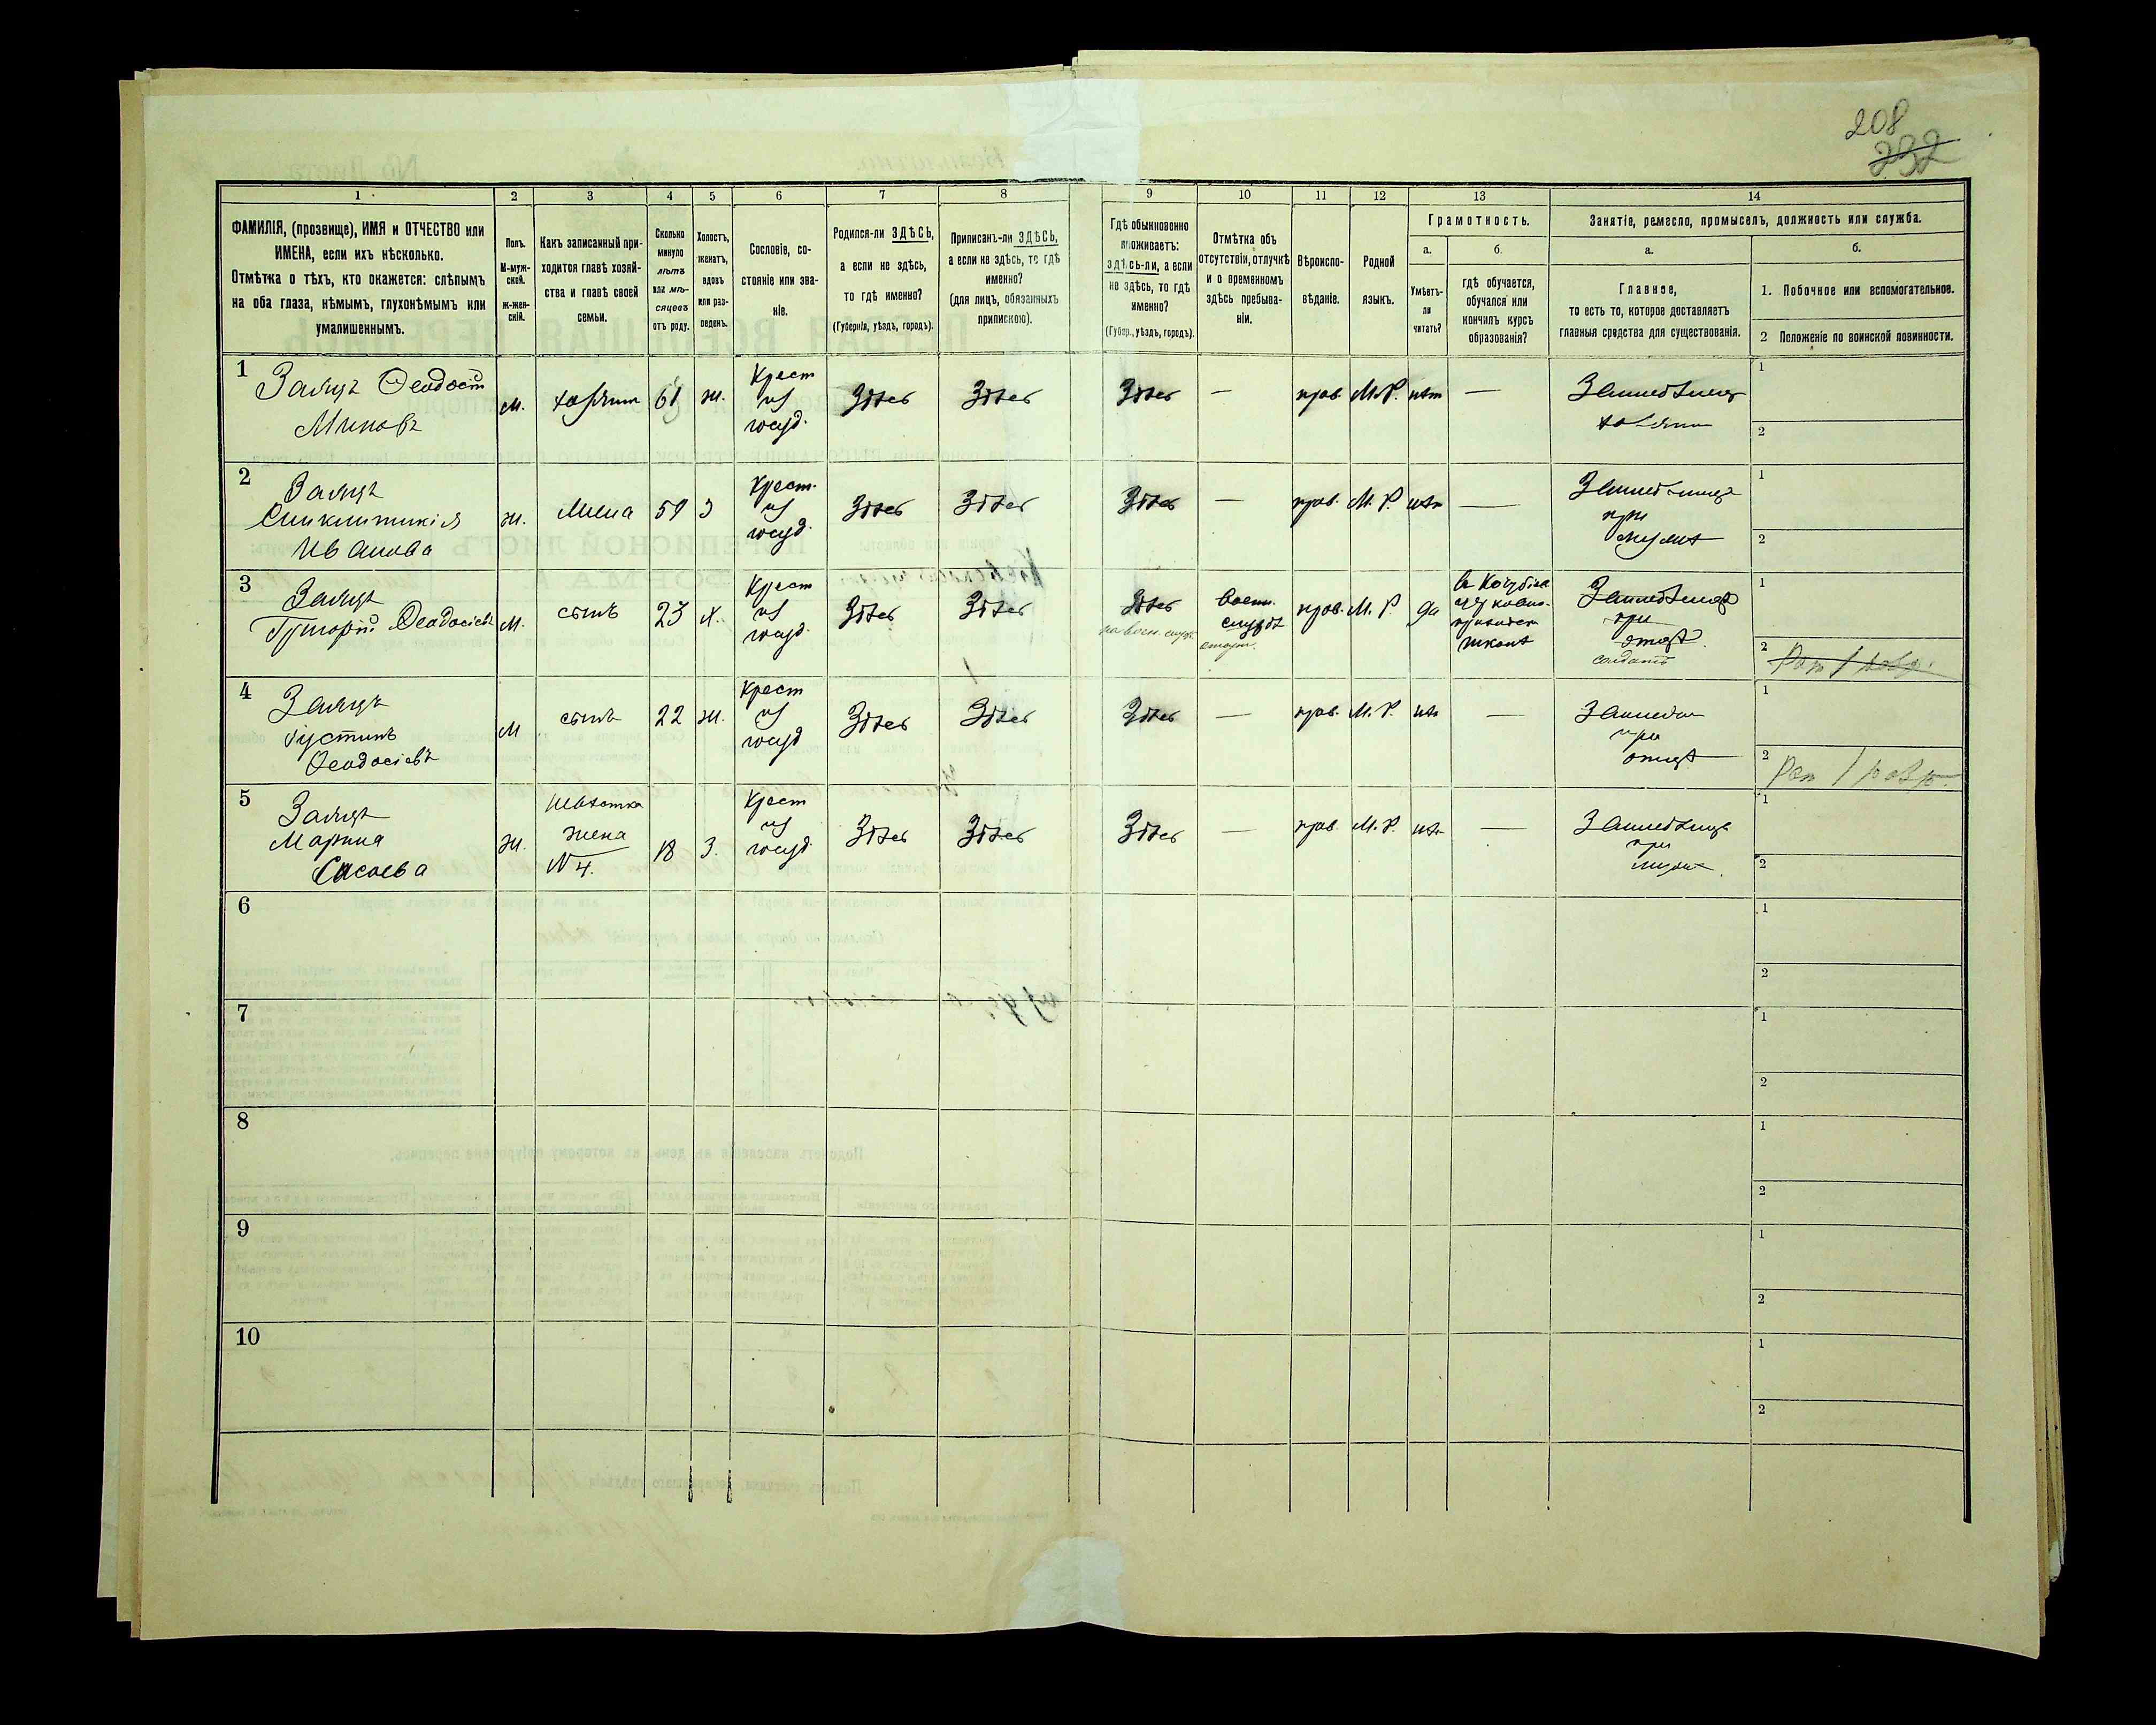 208
232
1
2
3
4
5
6
7
8
9
10
11
12
13
14
ФАМИЛІЯ, (прозвище), ИМЯ и ОТЧЕСТВО или
ИМЕНА, если ихъ нѣсколько.
Отмѣтка о тѣхъ, кто окажется: слѣпымъ
на оба глаза, нѣмымъ, глухонѣмымъ или
умалишеннымъ.
Полъ.
М-муж-
ской.
ж-жен-
скій.
Какъ записанный при-
ходится главѣ хозяй-
ства и главѣ своей
семьи.
Сколько
минуло
лѣтъ
или мѣ-
сяцевъ
отъ роду.
Холостъ,
женатъ,
вдовъ
или раз-
веденъ.
Сословіе, со-
стояніе или зва-
ніе.
Родился-ли ЗДѢСЬ,
а если не здѣсь,
то гдѣ именно?
(Губернія, уѣздъ, городъ).
Приписанъ-ли ЗДѢСЬ,
а если не здѣсь, то гдѣ
именно?
(для лицъ, обязанныхъ
припискою).
Гдѣ обыкновенно
проживаетъ:
здѣсь-ли, а если
не здѣсь, то гдѣ
именно?
(Губер., уѣздъ, городъ).
Отмѣтка объ
отсутствіи, отлучкѣ
и о временномъ
здѣсь пребыва-
ніи.
Вѣроиспо-
вѣданіе.
Родной
языкъ.
Грамотность.
а.
Умѣетъ-
ли
читать?
б.
гдѣ обучается,
обучался или
кончилъ курсъ
образованія?
Занятіе, ремесло, промыселъ, должность или служба.
а.
Главное,
то есть то, которое доставляетъ
главныя средства для существованія.
б.
1. Побочное или вспомогательное.
2 Положеніе по воинской повинности.
1
Заяцъ Ѳеодосій
Миновъ
м.
хозяинъ
61
ж.
Крест
из
госуд.
Здѣсь
Здѣсь
Здѣсь
—
прав.
М.Р.
нѣт
—
Земледѣлец
хозяин
1
2
2
Заяцъ
Синклитикія
Иванова
ж.
жена
59
З
Крест.
из
госуд.
Здѣсь
Здѣсь
Здѣсь
—
прав.
М. Р.
нѣт
—
Земледѣлецъ
при
мужѣ
1
2
3
Заяцъ
Григорій Ѳеодосіевъ
М.
сынъ
23
х.
Крест
из
госуд.
Здѣсь
Здѣсь
Здѣсь
на воен. служ.
Воен.
службѣ
прав.
М. Р.
да
церковно-
приходск
школѣ
Земледѣлец
при
отцѣ.
солдатъ
1
2
Рат 1 разр.
4
Заяцъ
Густинъ
Ѳеодосіевъ
М
сынъ
22
ж.
Крест
из
госуд
Здѣсь
Здѣсь
Здѣсь
—
прав.
М. Р.
нѣт
—
Земледѣл
при
отцѣ
1
2
Рат 1 разр.
5
Заяцъ
Марина
Сасоева
ж.
невѣстка
жена
N 4.
18
З.
Крест
из
госуд
Здѣсь
Здѣсь
Здѣсь
—
прав
М. Р.
нѣт
—
Земледѣлец
при
мужѣ.
1
2
6
1
2
7
1
2
8
1
2
9
1
2
10
1
2